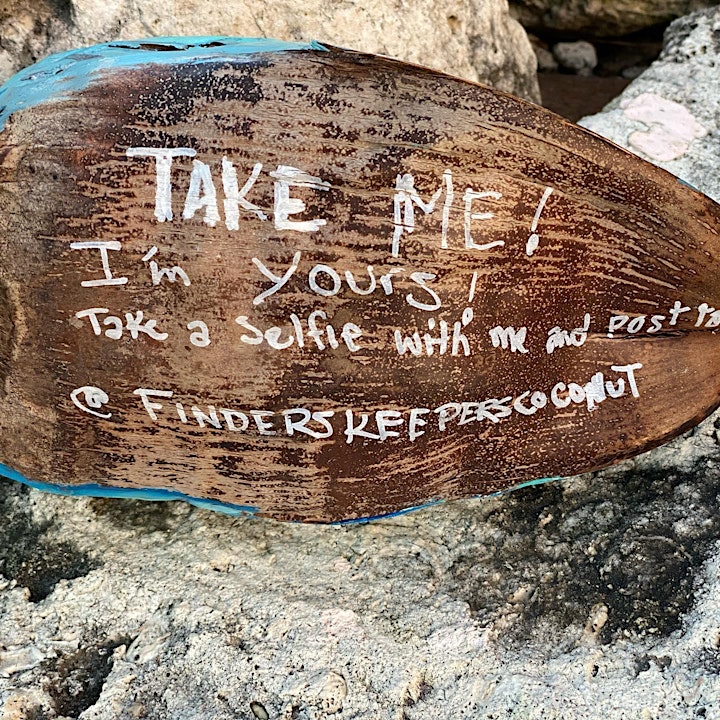 TAKE ME!
I'm yours!
Take a selfie with me and post to
@FINDERSKEEPERSCOCONUT